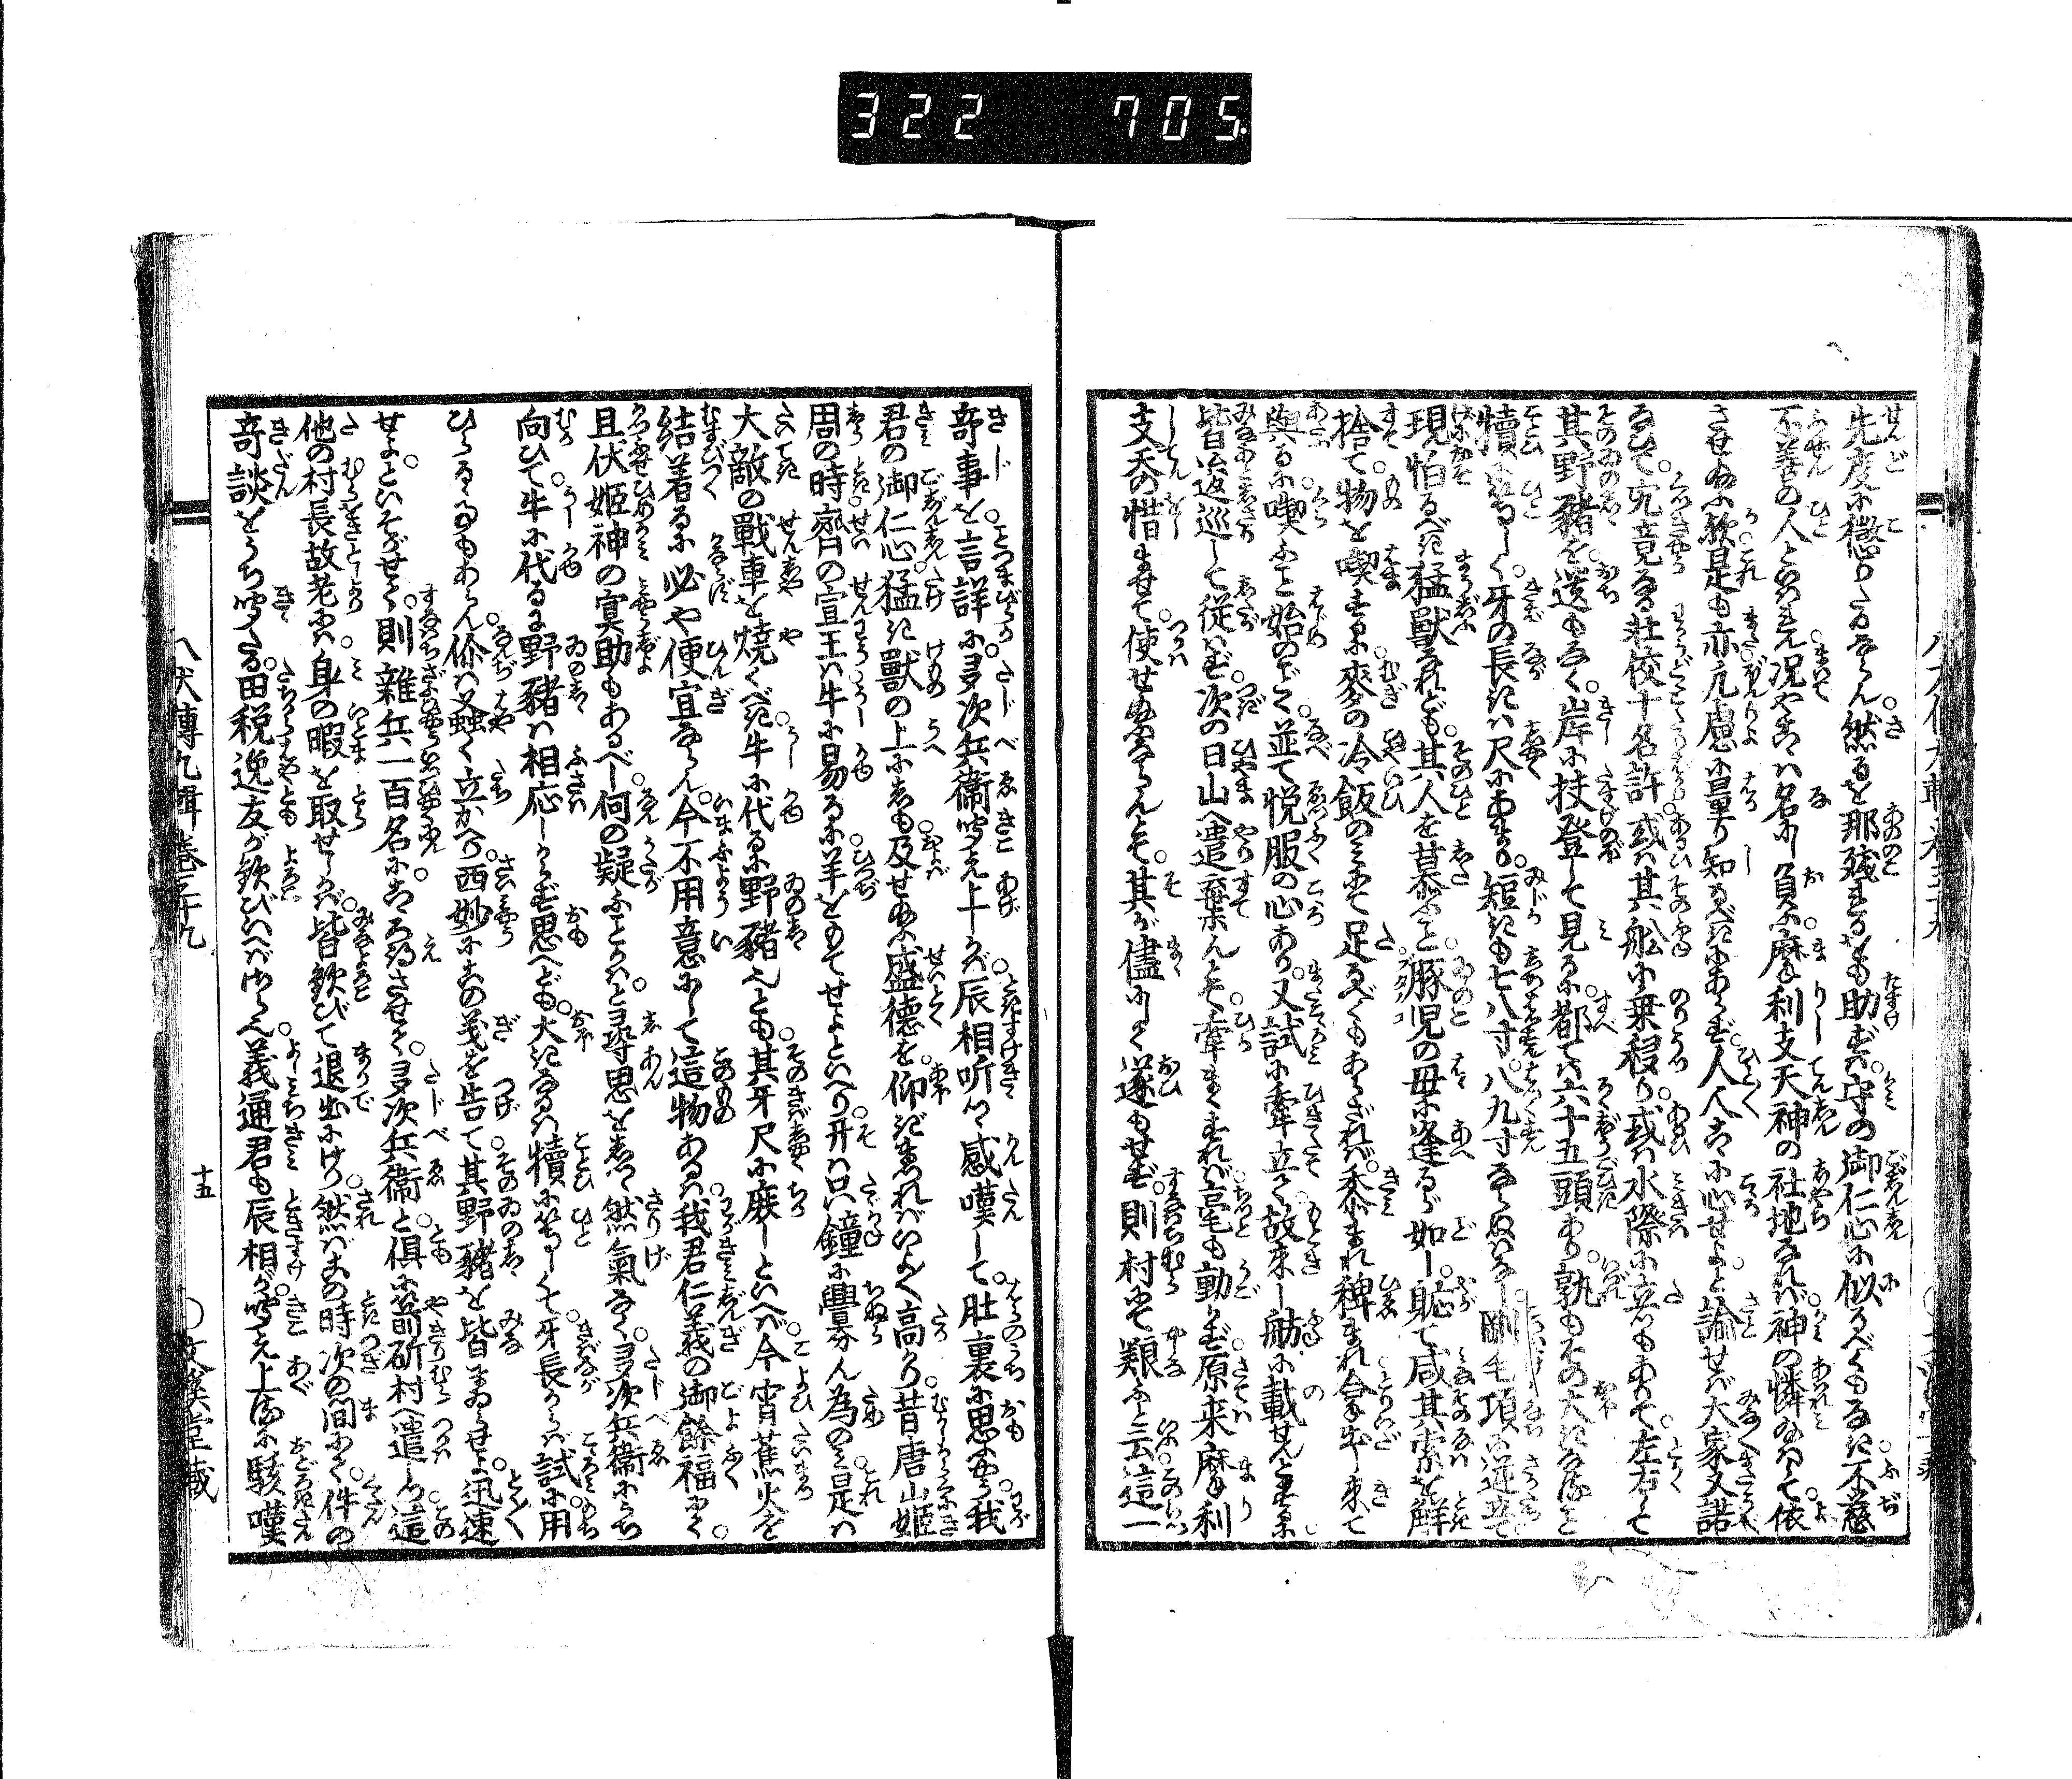 322 705
先度に懲りたるならん。然るを那残忍をも助けずは。守の御仁心に似るべくもなき。不慈
不善の人といはれん。况やこゝは名にし負ふ。摩利支天神の社地なれば。神の憐み給ひて。依
させ給ふ歟。是も亦凡慮に量り知るべきにあらず。人人こゝに心せよ。と諭せば大家又諾
なひて。究竟なる壮佼十名許。或は其舩に乗移り。或は水際に立もありて。左右して
其野猪を。送もなく岸に扶登して見るに。都て六十五頭あり。孰もその大きなること
犢に等しく。牙の長きは尺にあまり。短きも七八寸。八九寸ならぬはなし。剛毛項に逆立て
現怕るべき猛獣なれども。其人を慕ふこと。豚児の母に逢るが如し。軈て咸其索を解
捨て。物を喫まするに。麥の冷飯のみにて足るべくもあらざれば。黍まれ稗まれ拿出し来て
與るに喫ふこと始のごとく。並て悦服の心あり。又試に牽立て。故来し舩に載せんとするに
皆逡巡して従はず。次の日山へ遣棄んとて。牽まくすれば毫も動かず。原来摩利
支天の惜ませて。使せ給ふならんとて。其が儘にして遂もせず。則村にて艱ふと云。這一
奇事を言詳に。多次兵衛聞え上しかば。辰相听つ感嘆して。肚裏に思ふやう。我
君の御仁心。猛き獣の上にしも及せ給ふ盛徳を。仰ぎまつればいよゝ高かり。昔唐山姫
周の時。齊の宣王は牛に易るに。羊をもてせよといへり。开は只鐘に釁ん為のみ。是は
大敵の戰車を焼くべき。牛に代るに野猪也とも。其牙尺に蔴しといへば。今宵蕉火を
結着るに。必や便宜ならん。今不用意にして這物あるは。我君仁義の御餘福にて。
且伏姫神の冥助もあるべし。何の疑ふことかは。と尋思をしつゝ然氣なく。多次兵衛にうち
向ひて。牛に代るに野猪は相応しからず思へども。大きなるは犢に等しくて。牙長からば試に。用
ひらるゝ事もあらん。你は又蚤く立かへり。西妙にこの義を告て。其野猪を皆まゐらせよ。迅速
せよ。といそがせて。則雜兵一百名に。こゝろ得させて。多次兵衛と倶に箭斫村へ遣しつ。這
他の村長故老には。身の暇を取せしかば。皆歓びて退出にけり。然ばこの時次の間にて。件の
奇談をうち聞たる。田税逸友が歓びいへばさら也。義通君も辰相が。聞え上るに駭嘆
八犬傳九輯巻三十九
十五
○文溪堂藏